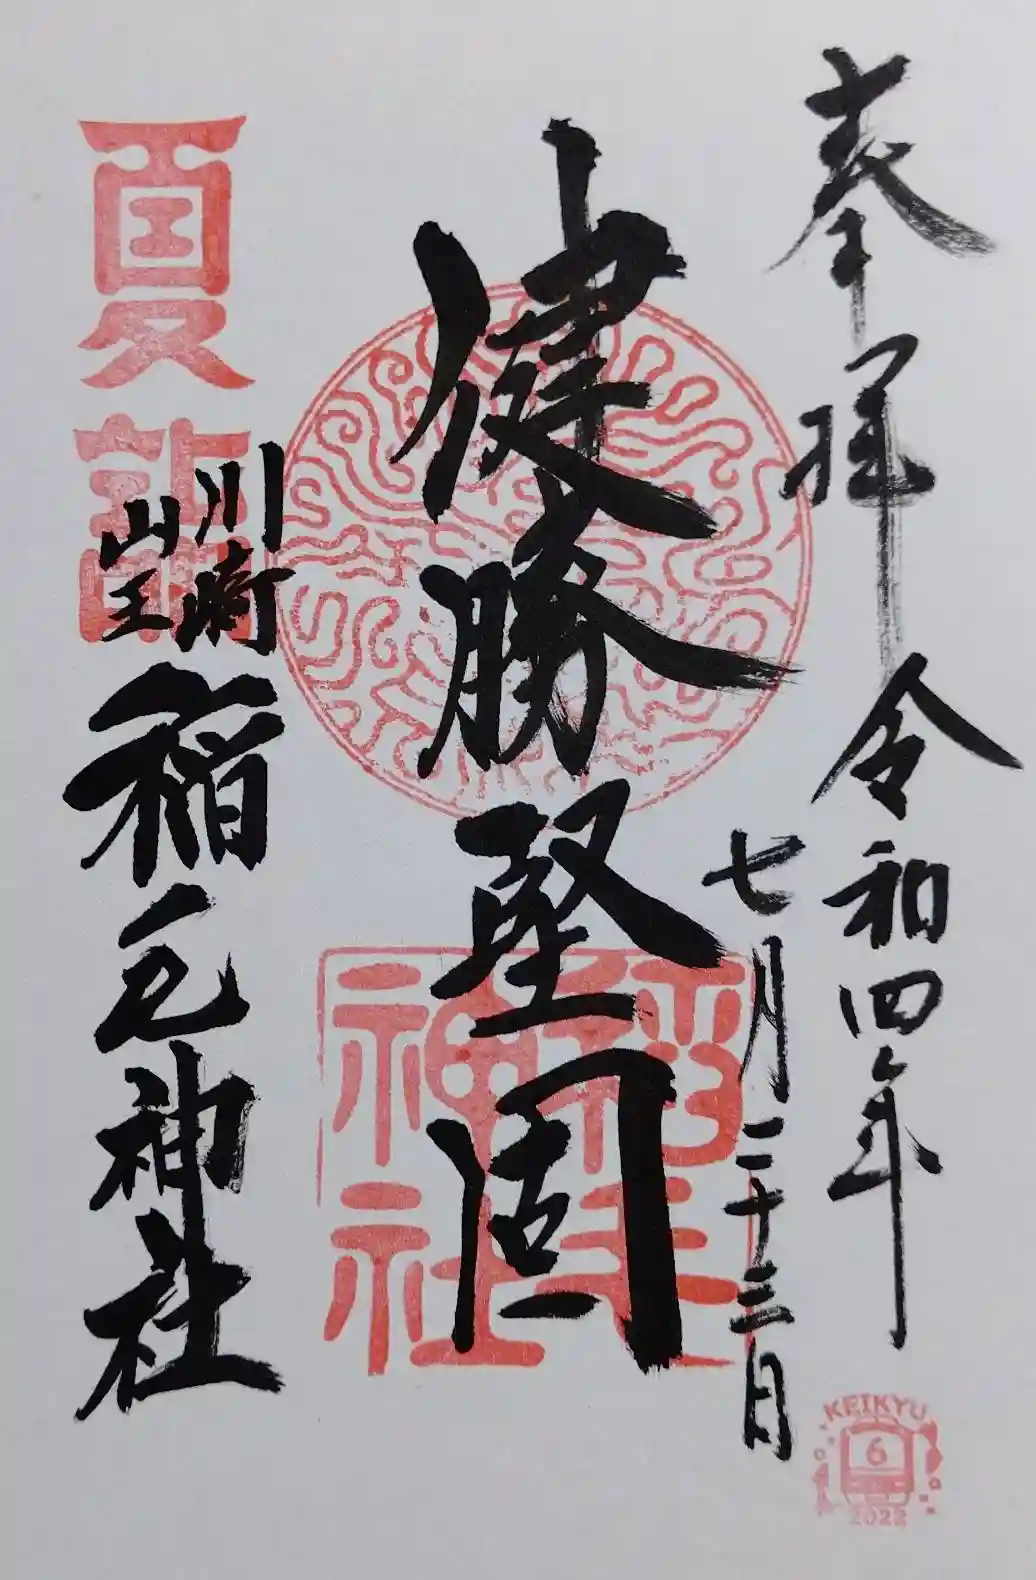 奉拝
令和四年
七月二十三日
健勝堅固
川崎
山王
稲毛神社
夏詣
稲毛
神社
KEIKYU
6
2022